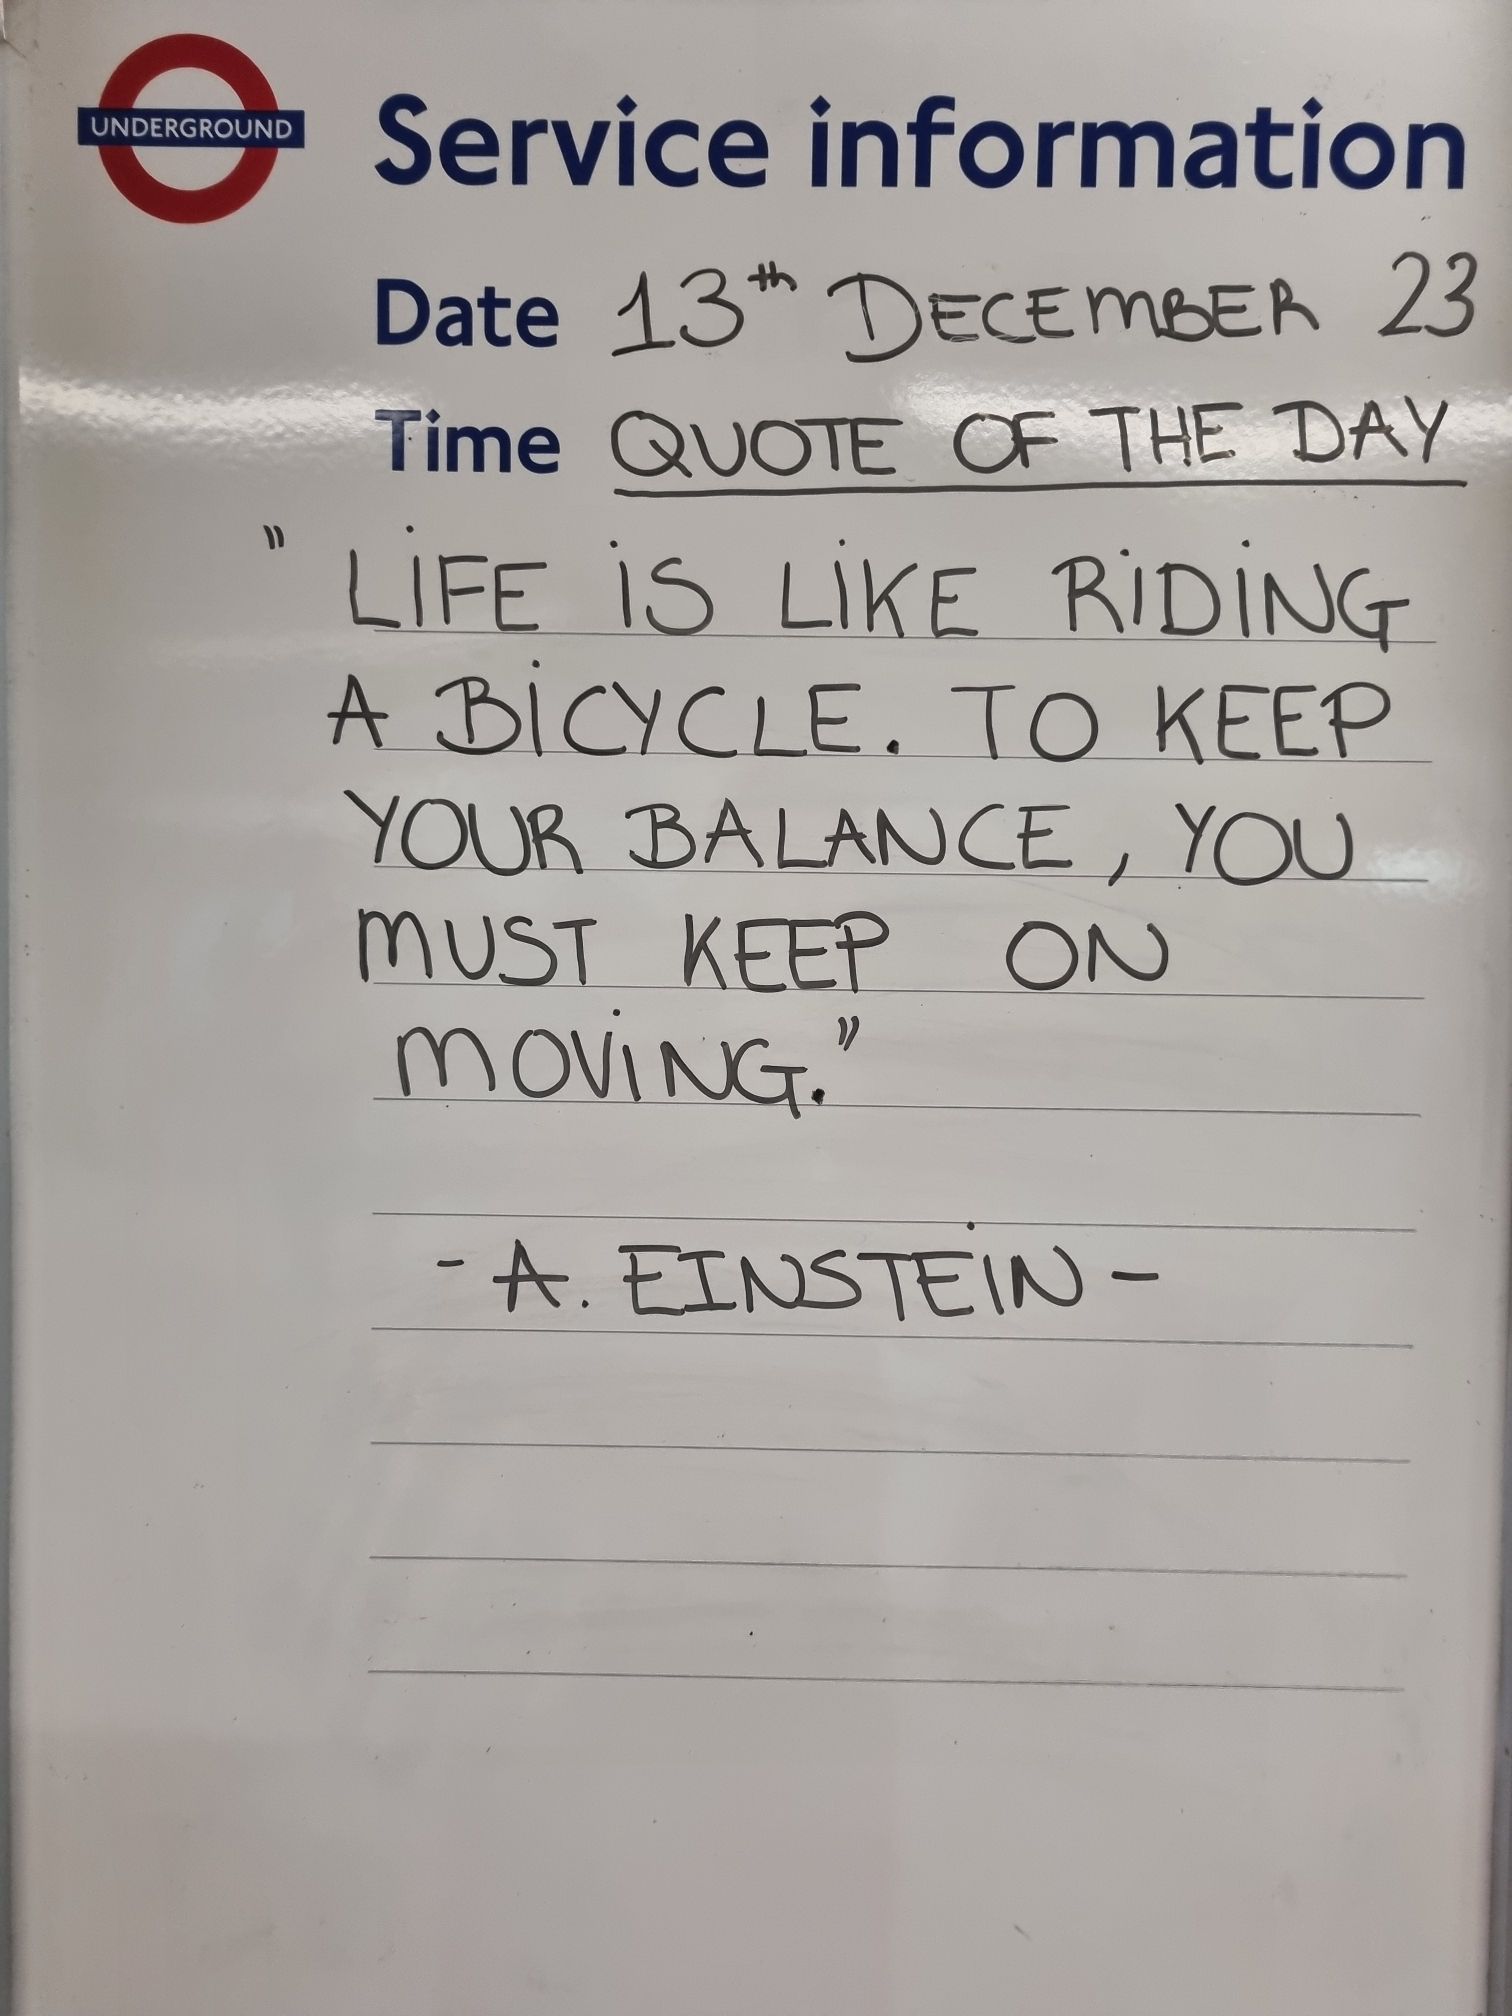 UNDERGROUND
Service information
Date 13th DECEMBER 23
Time QUOTE OF THE DAY
" LiFE iS LiKE RiDiNG
A BiCYCLE. TO KEEP
YOUR BALANCE, YOU
MUST KEEP ON
MOViNG."
- A. EINSTEiN -